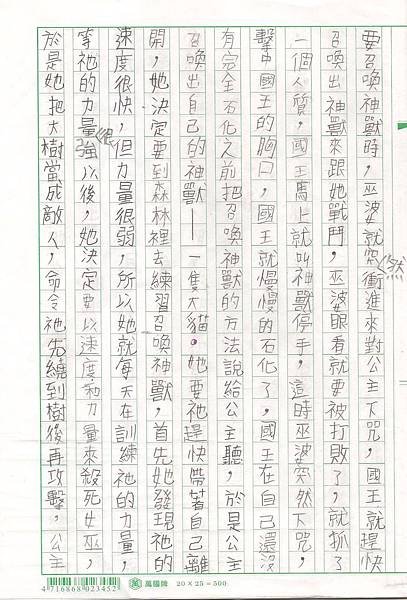 要召喚神獸時，巫婆就突然衝進來對公主下咒，國王就趕快
召喚出神獸來跟她戰鬥，巫婆眼看就要被打敗了，就抓了
一個人質，國王馬上就叫神獸停手，這時巫婆突然下咒，
擊中國王的胸口，國王就慢慢的石化了，國王在自己還沒
有完全石化之前把召喚神獸的方法說給公主聽，於是公主
召喚出自己的神獸——一隻大貓。她要祂趕快帶著自己離
開，她決定要到森林裡去練習召喚神獸，首先她發現祂的
速度很快，但力量很弱，所以她就每天在訓練祂的力量，
等祂的力量很強以後，她決定要以速度和力量來殺死女巫，
於是她把大樹當成敵人，命令祂先繞到樹後再攻擊，公主
4716868023452
萬國牌 20×25=500